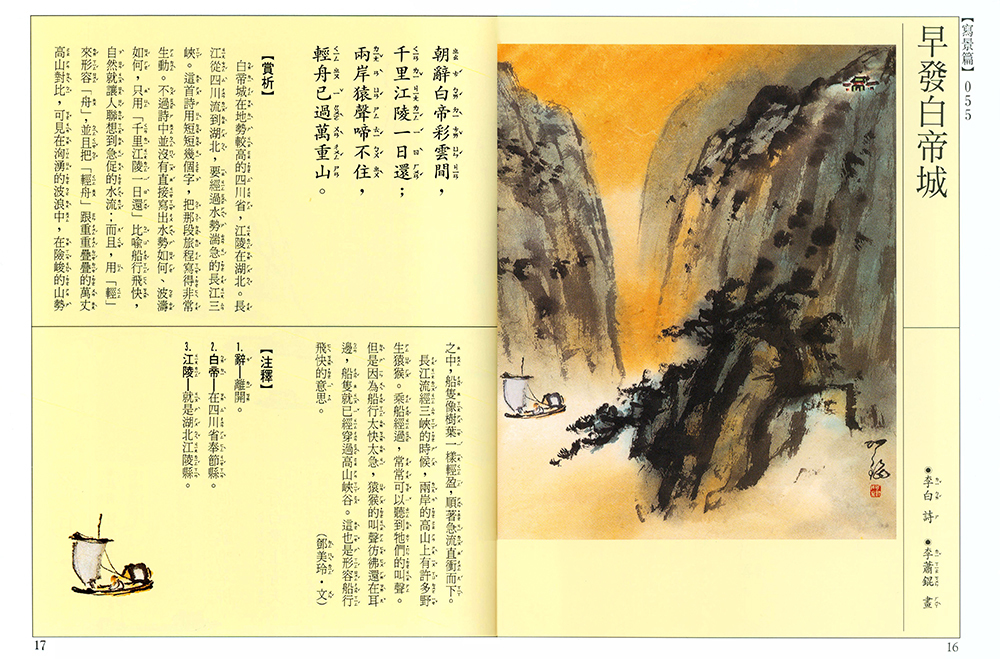 【寫景篇】055
早發白帝城
●李白 詩 ●李蕭錕 畫
16
朝辭白帝彩雲間，
千里江陵一日還；
兩岸猿聲啼不住，
輕舟已過萬重山。
【賞析】
白帝城在地勢較高的四川省，江陵在湖北。長
江從四川流到湖北，要經過水勢湍急的長江三
峽。這首詩用短短幾個字，把那段旅程寫得非常
生動。不過詩中並沒有直接寫出水勢如何、波濤
如何，只用「千里江陵一日還」比喻船行飛快，
自然就讓人聯想到急促的水流；而且，用「輕」
來形容「舟」，並且把「輕舟」跟重重疊疊的萬丈
高山對比，可見在洶湧的波浪中，在險峻的山勢
之中，船隻像樹葉一樣輕盈，順著急流直衝而下。
長江流經三峽的時候，兩岸的高山上有許多野
生猿猴。乘船經過，常常可以聽到牠們的叫聲。
但是因為船行太快太急，猿猴的叫聲彷彿還在耳
邊，船隻就已經穿過高山峽谷。這也是形容船行
飛快的意思。
（鄧美玲・文）
【注釋】
1.辭—離開。
2.白帝—在四川省奉節縣。
3.江陵—就是湖北江陵縣。
17